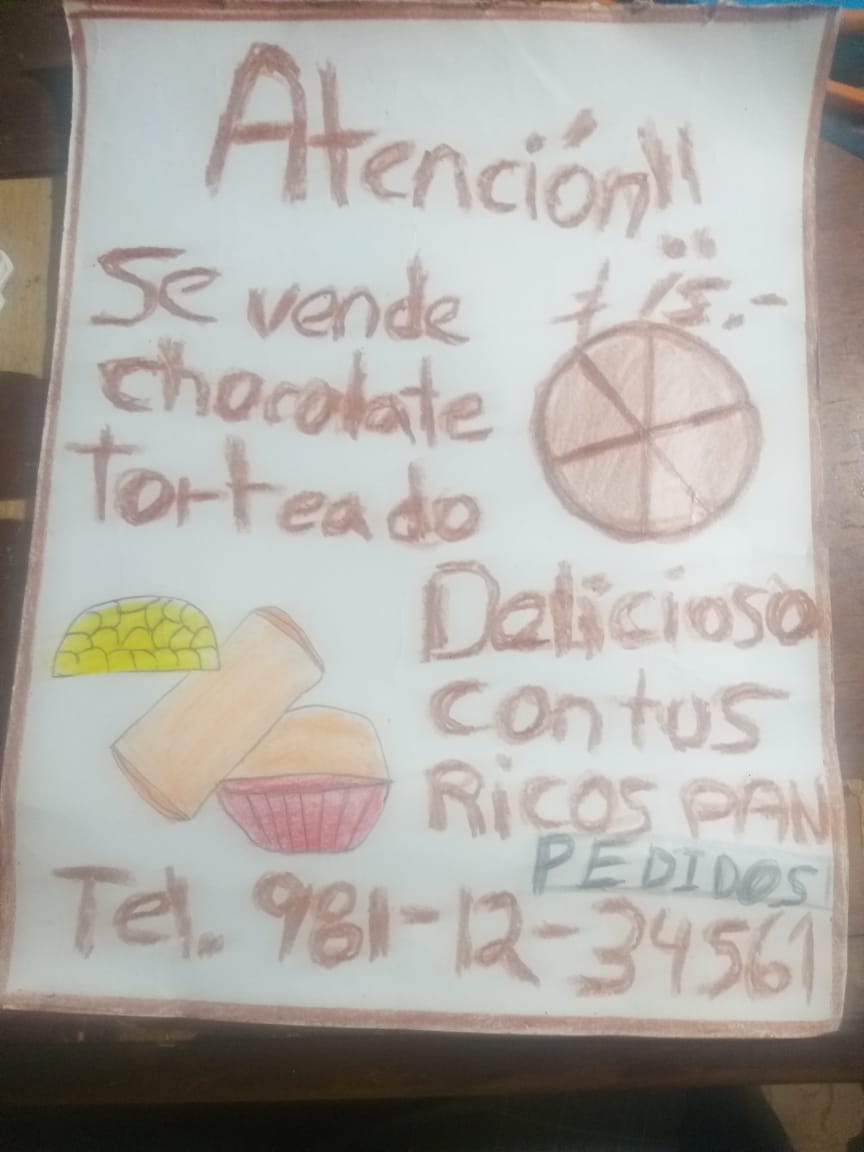 Atención!!
Se vende
$ 15.-
chocolate
torteado
Delicioso
con tus
Ricos PAN
PEDIDOS
Tel. 981-12-34561